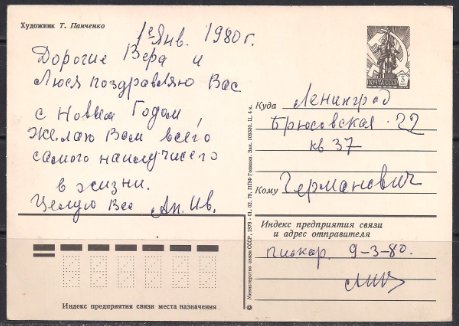 Художник Т. Панченко
1е Янв. 1980 г.
Дорогие Вера и
Люся поздравляю Вас
с Новым Годом,
Желаю Вам всего
самого наилучшего
в жизни.
Целую Вас Ан. Ив.
Куда Ленинград
Брюсовская 22
кв 37
Кому Германович
Индекс предприятия связи
и адрес отправителя
9-3-80.
Индекс предприятия связи места назначения
Министерство связи СССР, 1979